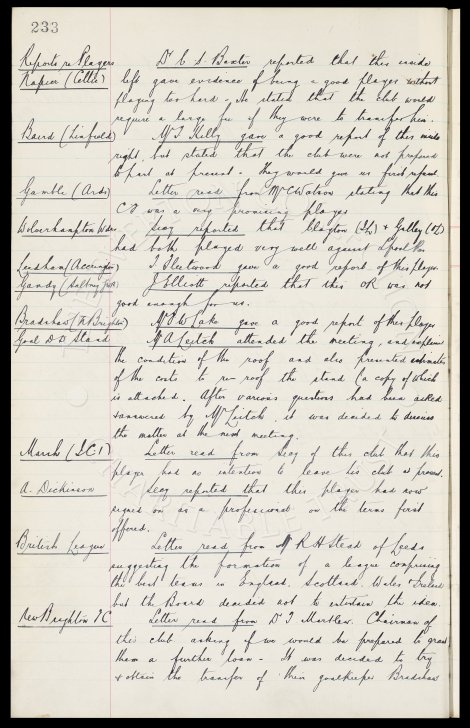 233
Reports re Players
Dr C. S. Baxter reported that this inside
Napier (Celtic)
left gave evidence of being a good player without
playing too hard. He stated that the club would
require a large fee if they were to transfer him.
Baird (Linfield)
Mr T Kelly gave a good report of this inside
right, but stated that the club were not prepared
to part at present. They would give us first refusal.
Gamble (Ards)
Letter read from Mr C Watson stating that this
was a very promising player
Wolverhampton Wdrs
Secy reported that Clayton & Galley (OL)
had both played very well against L'pool Res
(Accrington)
T Fleetwood gave a good report of this player.
Gandy
J Elliott reported that this OR was not
good enough for us.
Bradshaw (N. Brighton)
Mr W Lake gave a good report of this player
Goal D Stand
Mr A Leitch attended the meeting, and explained
the condition of the roof and also presented estimates
of the costs to re-roof the stand (a copy of which
is attached. After various questions had been asked
& answered by Mr Leitch, it was decided to discuss
the matter at the next meeting.
Letter read from Secy of this club that this
player had no intention to leave his club at present.
A. Dickinson
Secy reported that this player had now
signed on as a professional on the terms first
offered.
British League
Letter read from Mr R H Stead of Leeds
suggesting the formation of a league comprising
the best teams in England, Scotland, Wales & Ireland
but the Board decided not to entertain the idea.
New Brighton FC
Letter read from Dr T Martlew. Chairman of
this club asking if we would be prepared to grant
them a further loan - It was decided to try
& obtain the transfer of their goalkeeper Bradshaw